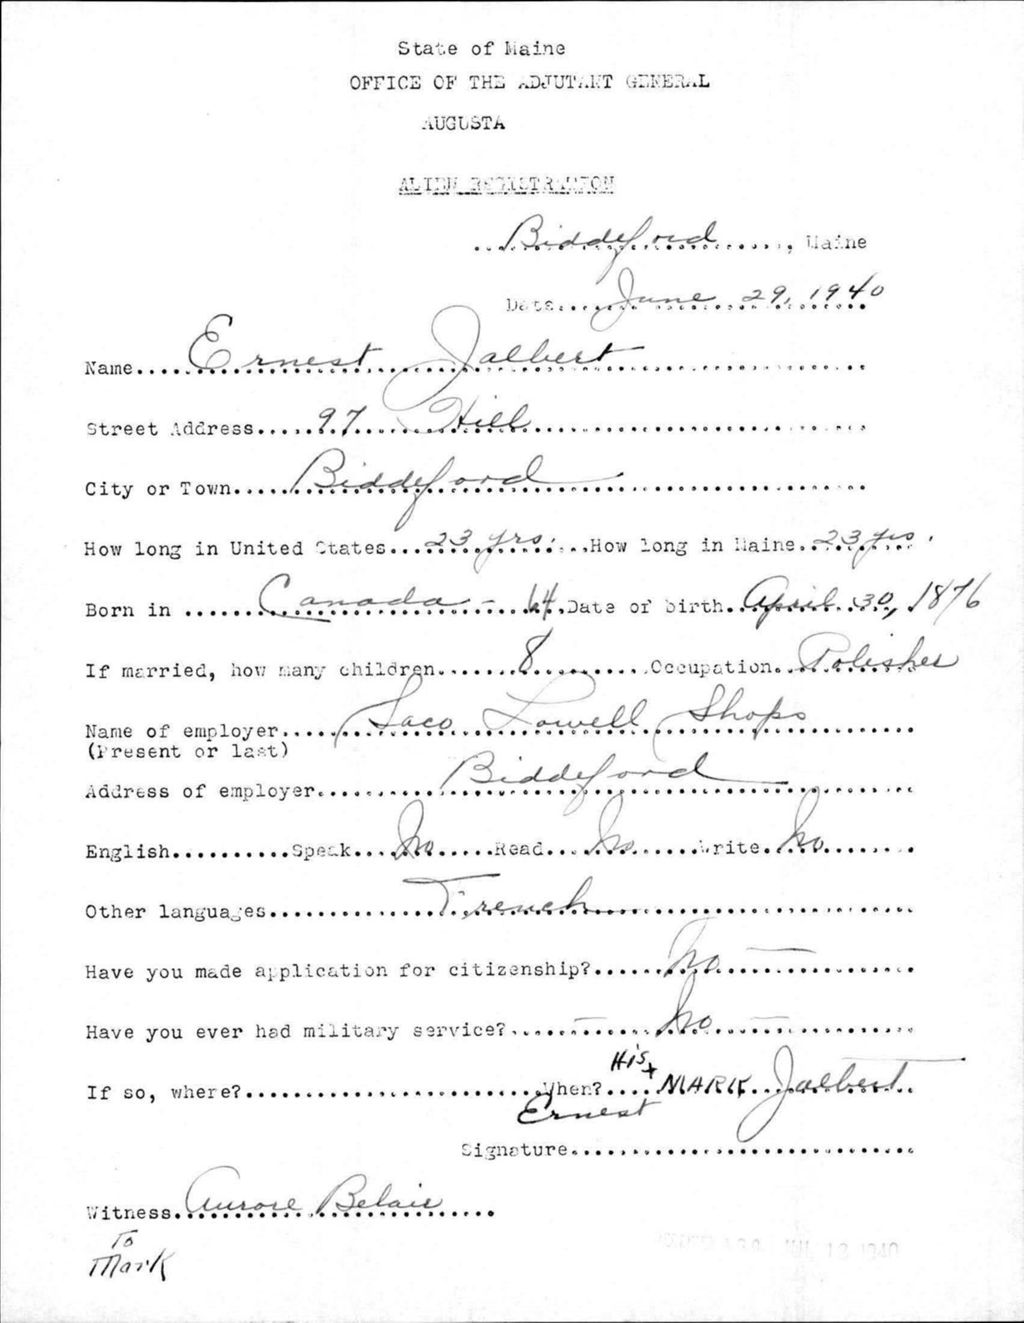 State of Maine
OFFICE OF THE ADJUTANT GENERAL
AUGUSTA
ALIEN REGISTRATION
Biddeford, Maine
Date June 29, 1940
Name Ernest Jalbert
Street Address 97 Hill
City or Town Biddeford
How long in United States 23 yrs. How long in Maine 23 yrs.
Born in Canada - 64 Date of birth April 30, 1876
If married, how many children 8 Occupation Polisher
Name of employer Saco Lowell Shops
(Present or last)
Address of employer Biddeford
English Speak No Read No Write No
Other languages French
Have you made application for citizenship? No
Have you ever had military service? No
His
If so, where? When? + MARK Jalbert
Ernest
Signature
Witness Aurore Belair
To
Mark